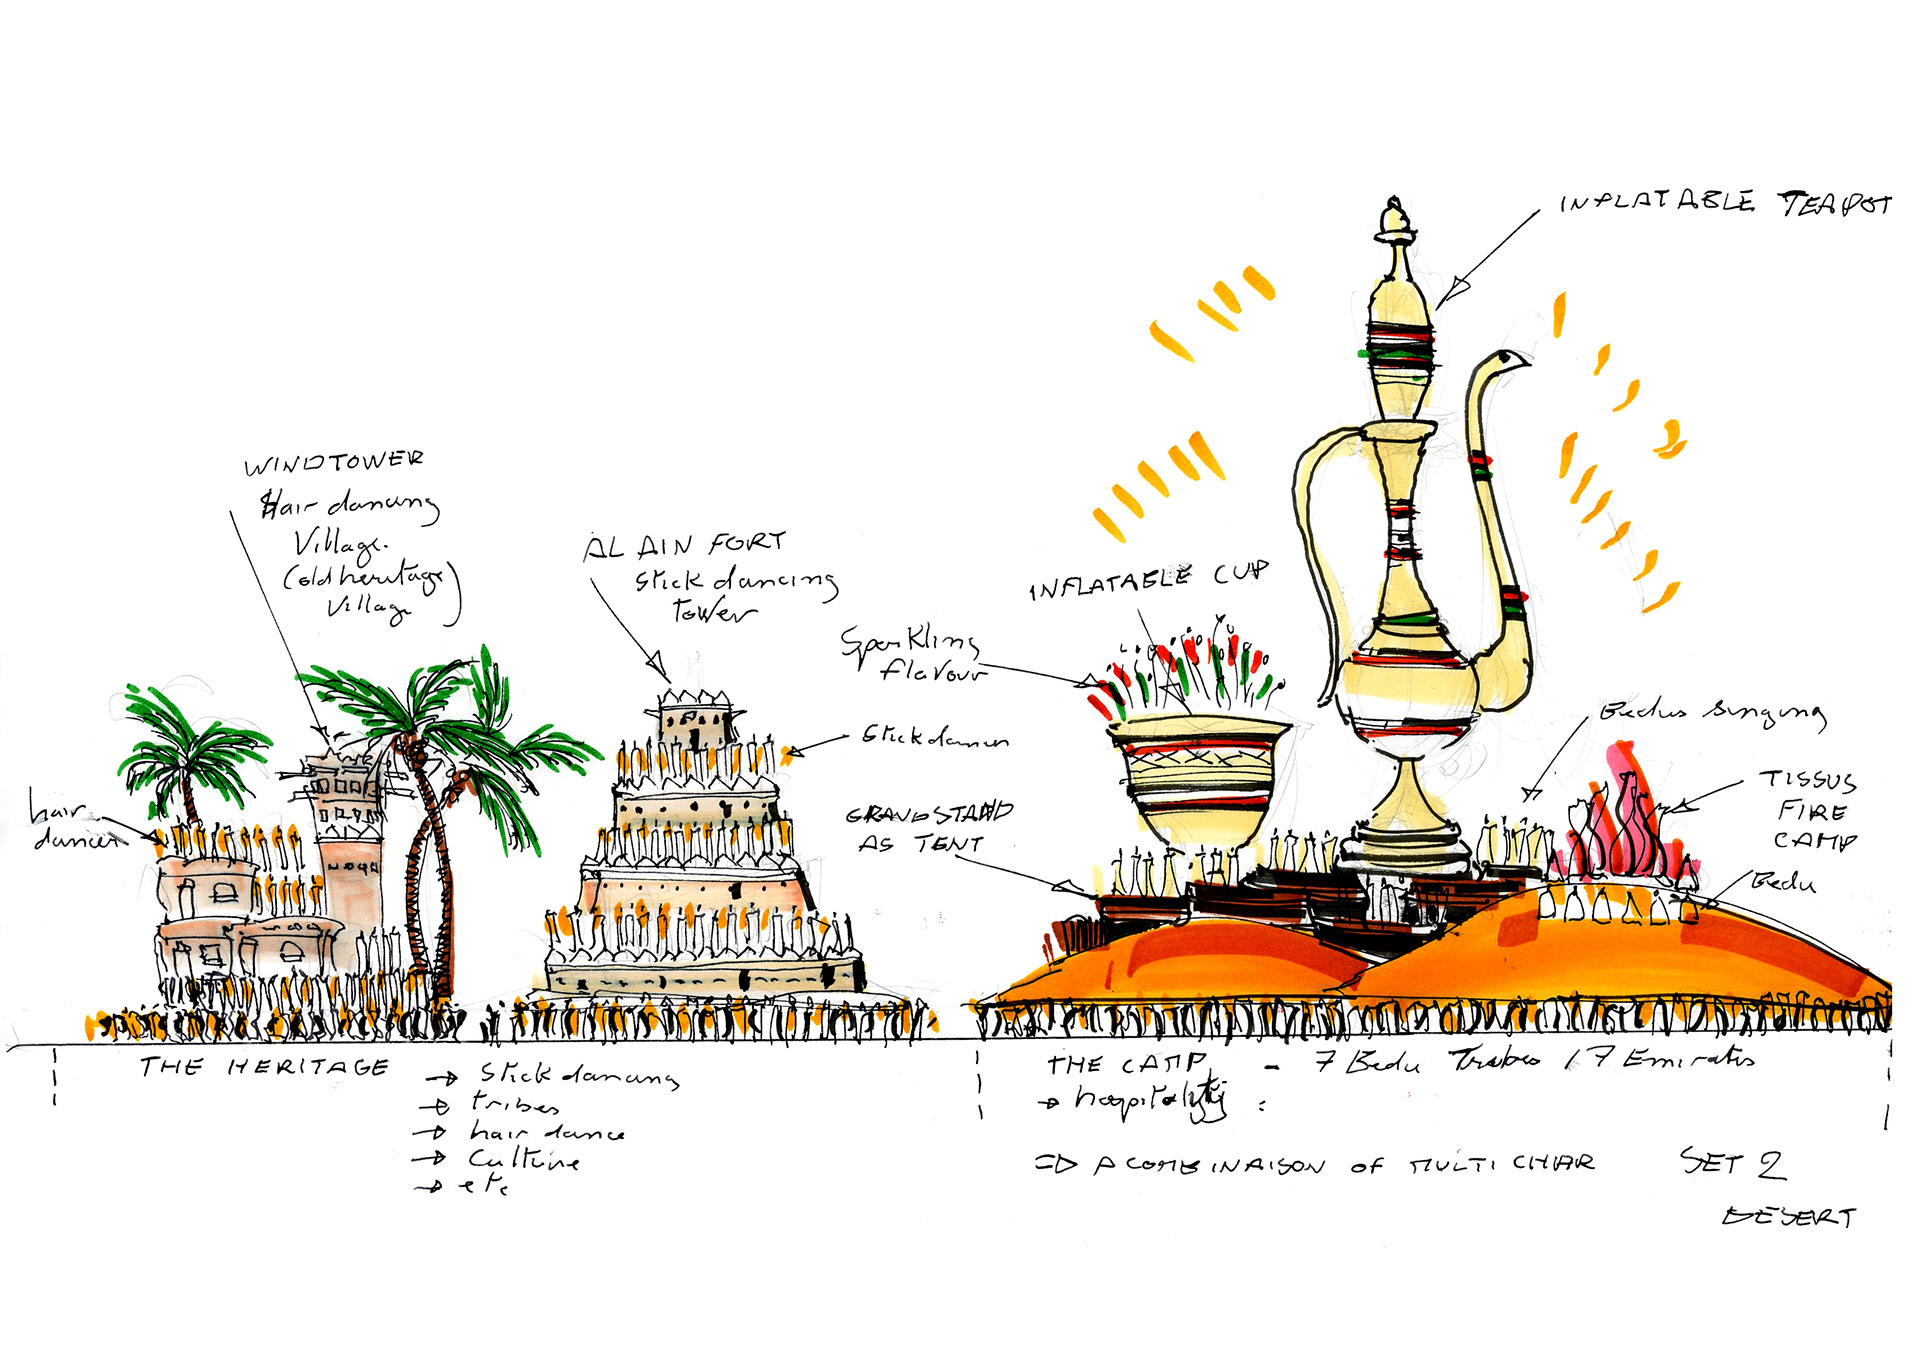 INFLATABLE TEAPOT
WINDTOWER
Hair dancing
Village.
(old heritage)
Village
AL AIN FORT
stick dancing
tower
INFLATABLE CUP
Sparkling
flavour
Stick dancer
hair
dancer
GRANDSTAND
AS TENT
Bedus singing
TISSUS
FIRE
CAMP
Bedu
THE HERITAGE
→ Stick dancing
→ tribes
→ hair dance
→ Culture
→ etc
THE CAMP - 7 Bedu Tribes / 7 Emirates
→ hospitality :
=> A COMBINAISON OF MULTI CHAR
SET 2
DESERT